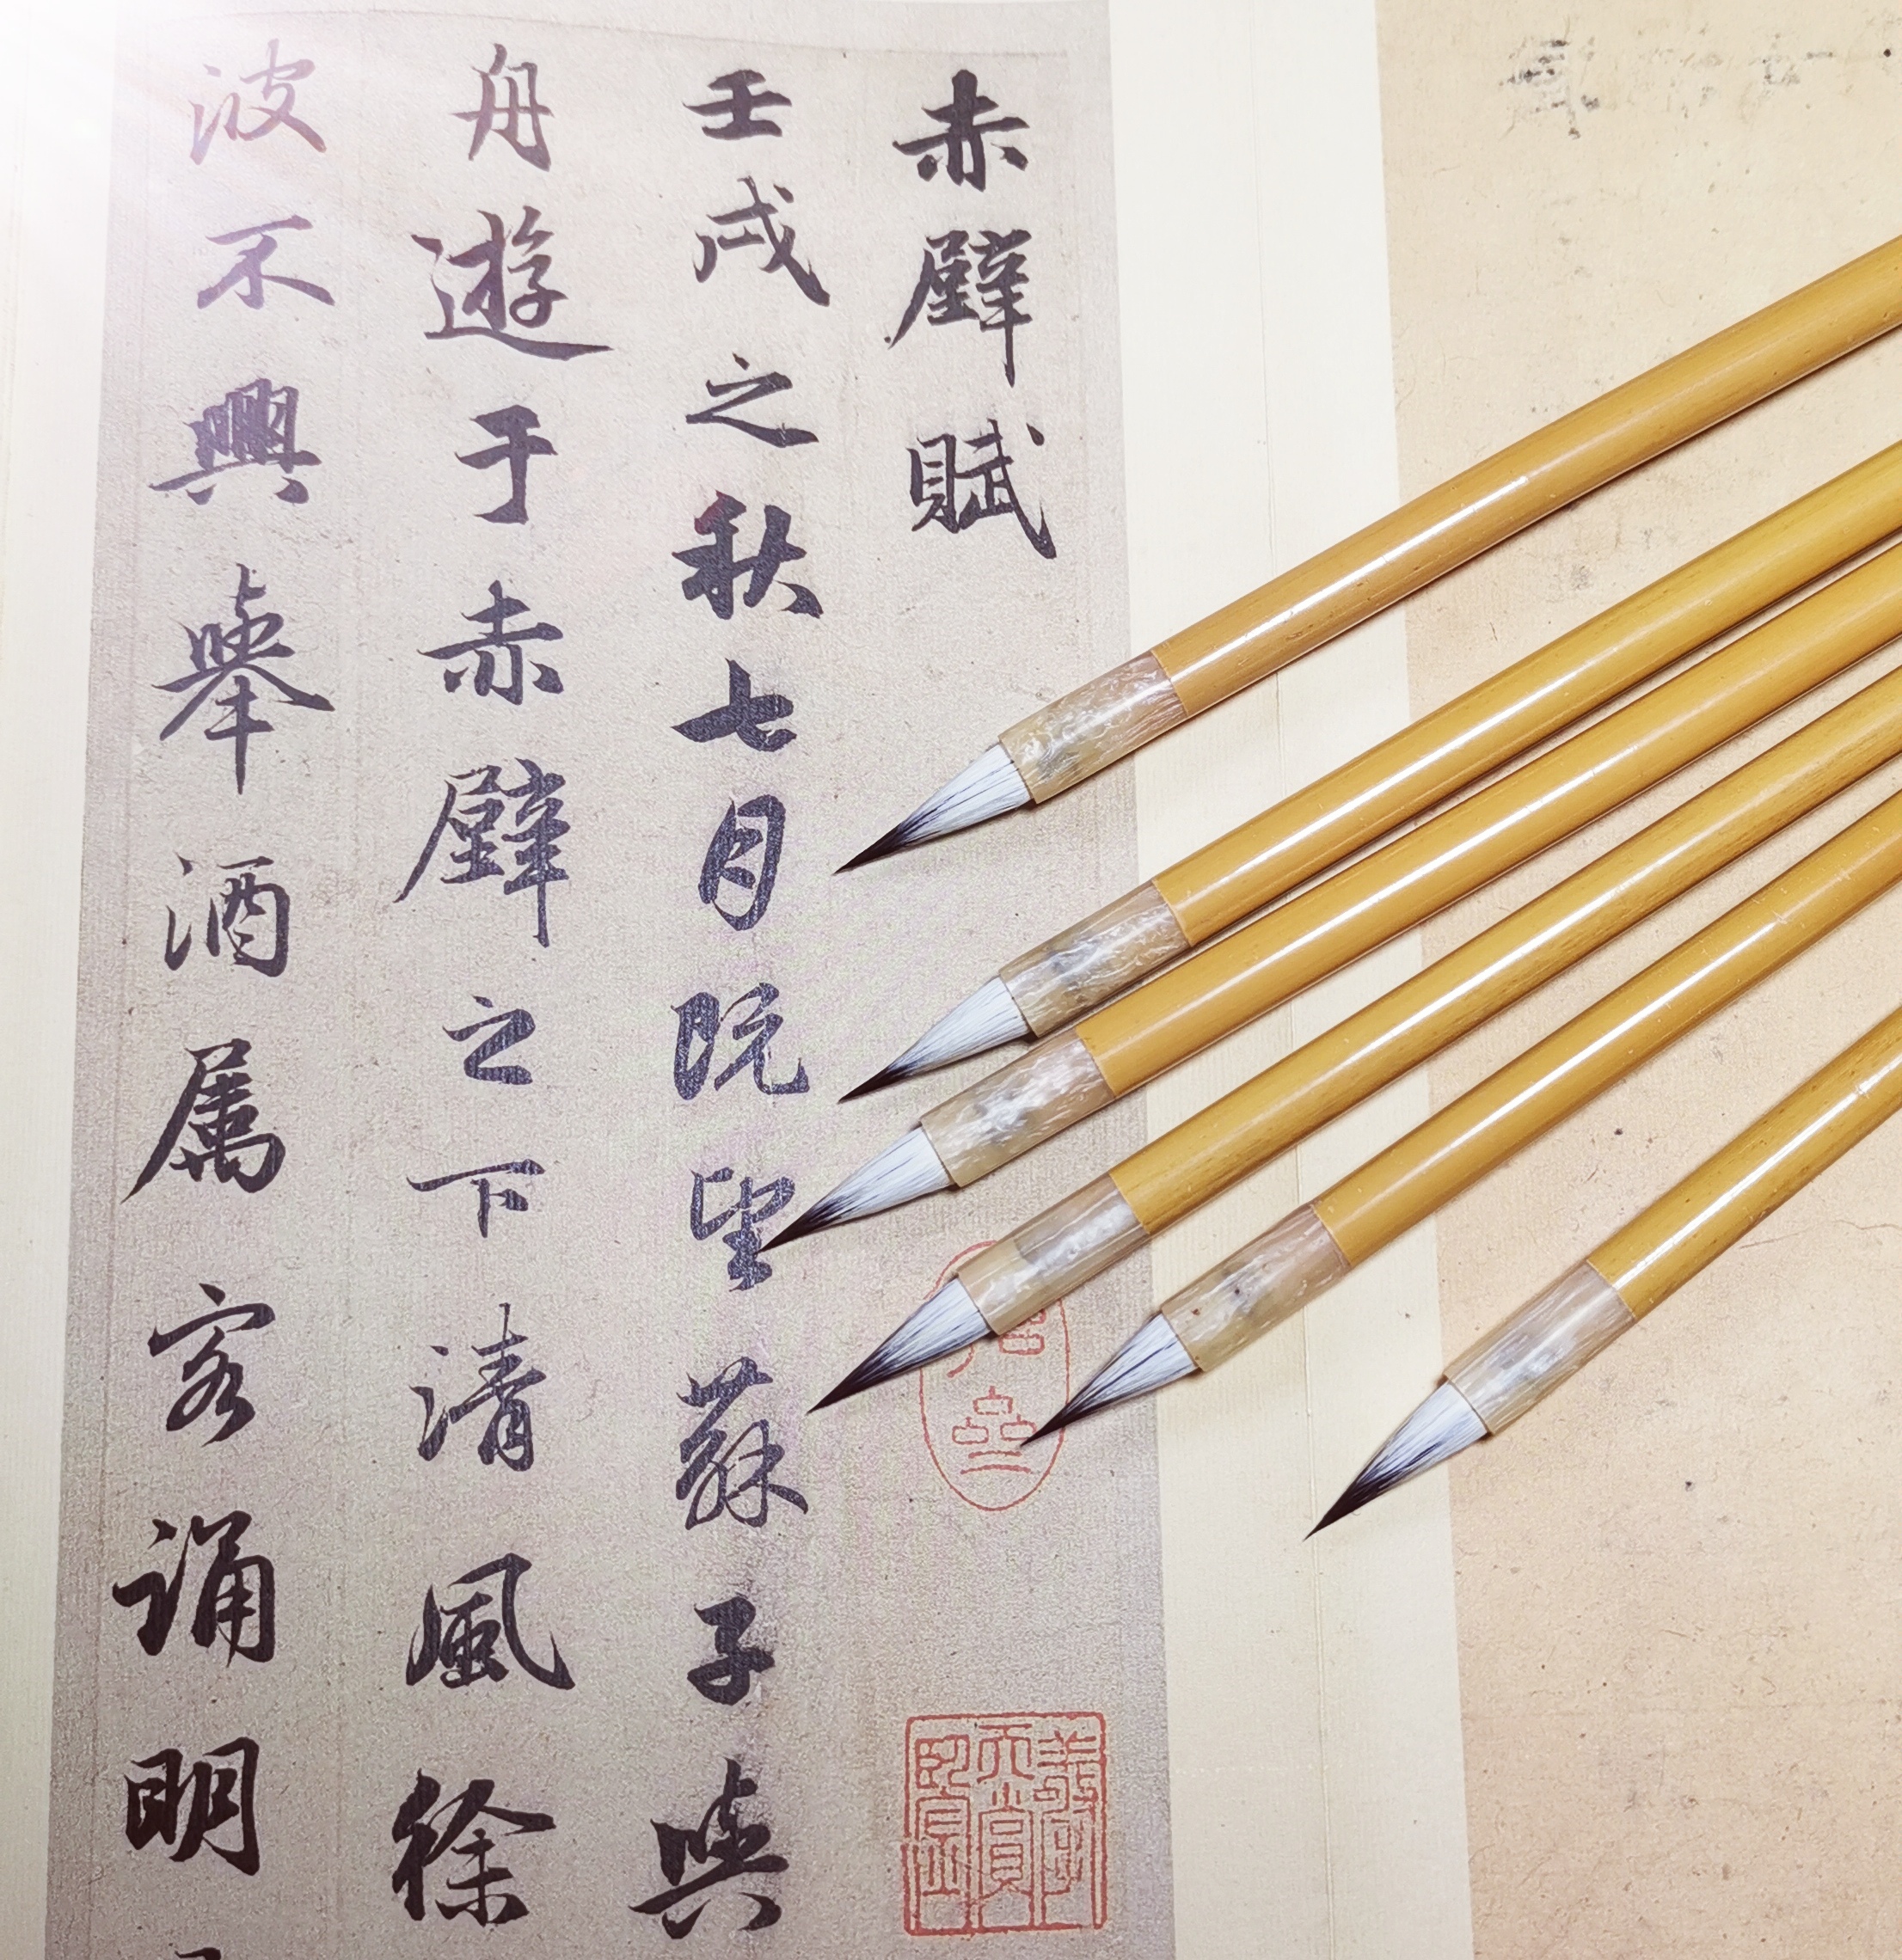 赤壁賦
壬戌之秋七月既望蘇子與
舟遊于赤壁之下清風徐
波不興舉酒属客誦明